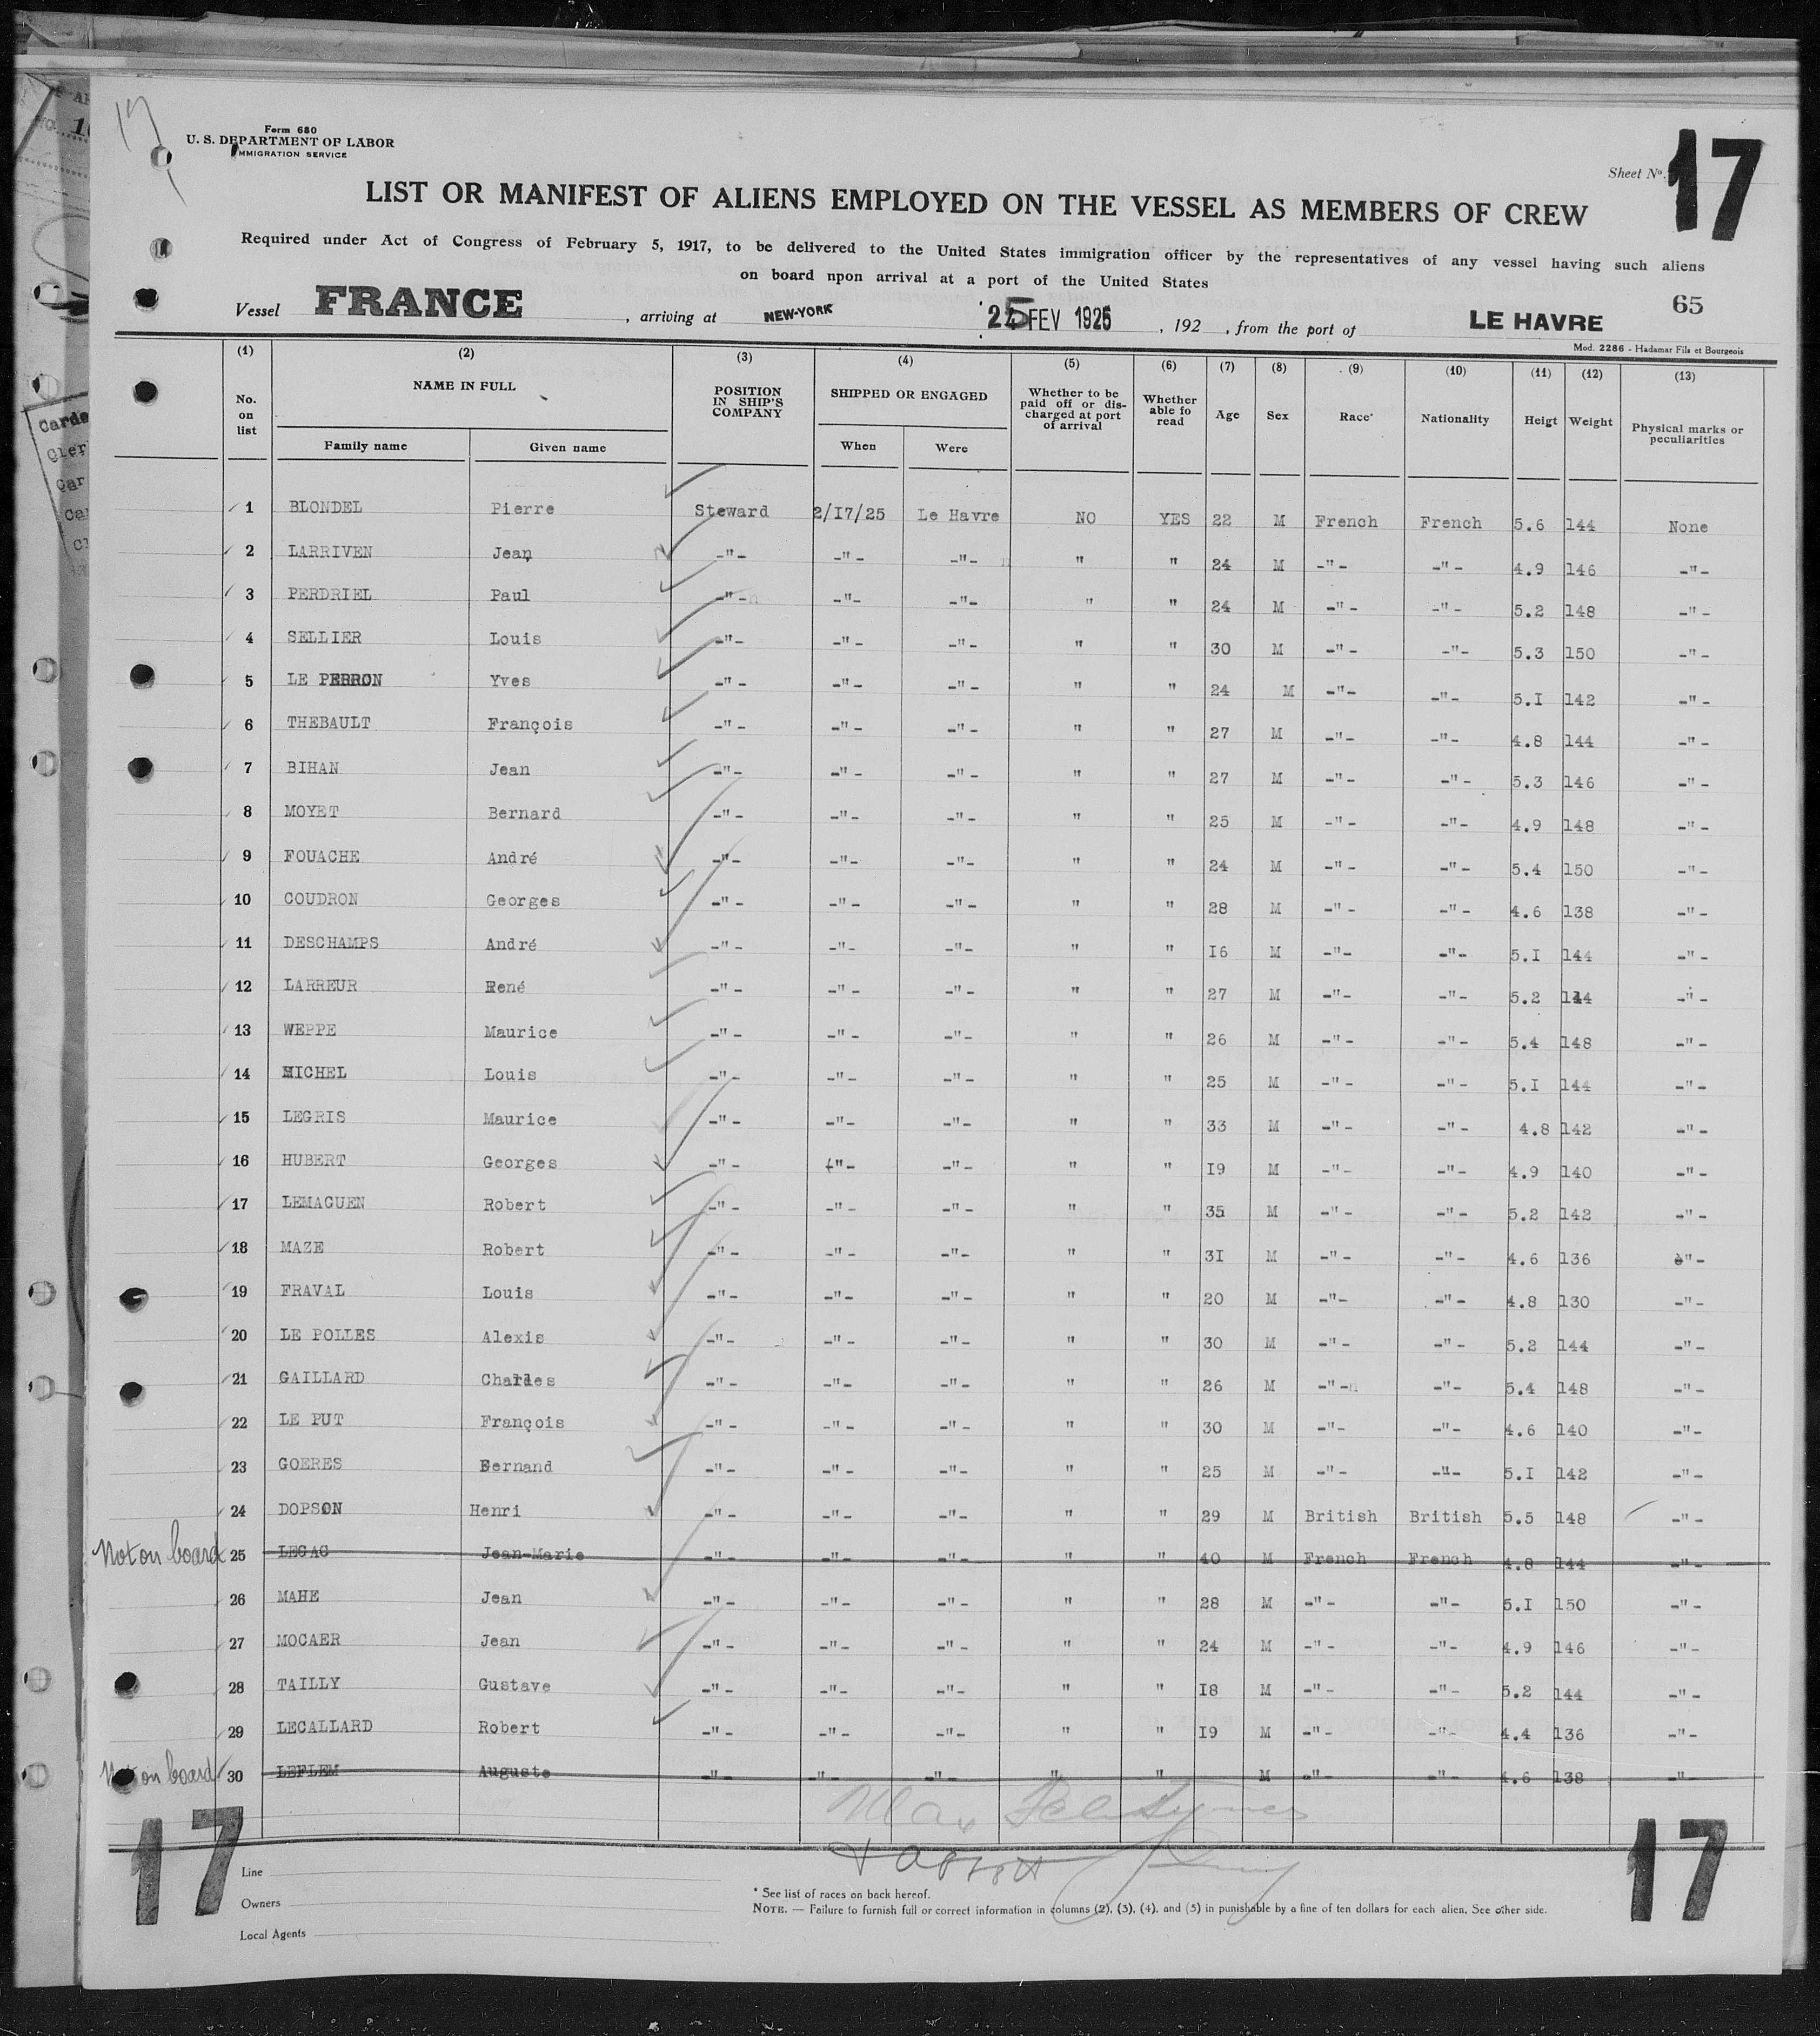 Form 680
U. S. DEPARTMENT OF LABOR
IMMIGRATION SERVICE
17
Sheet No. 17
LIST OR MANIFEST OF ALIENS EMPLOYED ON THE VESSEL AS MEMBERS OF CREW
Required under Act of Congress of February 5, 1917, to be delivered to the United States immigration officer by the representatives of any vessel having such aliens
on board npon arrival at a port of the United States
65
Vessel FRANCE , arriving at NEW-YORK 25 FEV 1925 , 192 , from the port of LE HAVRE
Mod. 2286 - Hadamar Fils et Bourgeois
(1) (2) (3) (4) (5) (6) (7) (8) (9) (10) (11) (12) (13)
No. on list NAME IN FULL Family name Given name POSITION IN SHIP'S COMPANY SHIPPED OR ENGAGED When Were Whether to be paid off or discharged at port of arrival Whether able fo read Age Sex Race* Nationality Heigt Weight Physical marks or peculiarities
1 BLONDEL Pierre Steward 2/17/25 Le Havre NO YES 22 M French French 5.6 144 None
2 LARRIVEN Jean -"- -"- -"- " " 24 M -"- -"- 4.9 146 -"-
3 PERDRIEL Paul -"- -"- -"- " " 24 M -"- -"- 5.2 148 -"-
4 SELLIER Louis -"- -"- -"- " " 30 M -"- -"- 5.3 150 -"-
5 LE PERRON Yves -"- -"- -"- " " 24 M -"- -"- 5.I 142 -"-
6 THEBAULT François -"- -"- -"- " " 27 M -"- -"- 4.8 144 -"-
7 BIHAN Jean -"- -"- -"- " " 27 M -"- -"- 5.3 146 -"-
8 MOYET Bernard -"- -"- -"- " " 25 M -"- -"- 4.9 148 -"-
9 FOUACHE André -"- -"- -"- " " 24 M -"- -"- 5.4 150 -"-
10 COUDRON Georges -"- -"- -"- " " 28 M -"- -"- 4.6 138 -"-
11 DESCHAMPS André -"- -"- -"- " " I6 M -"- -"- 5.I 144 -"-
12 LARREUR René -"- -"- -"- " " 27 M -"- -"- 5.2 144 -"-
13 WEPPE Maurice -"- -"- -"- " " 26 M -"- -"- 5.4 148 -"-
14 MICHEL Louis -"- -"- -"- " " 25 M -"- -"- 5.I 144 -"-
15 LEGRIS Maurice -"- -"- -"- " " 33 M -"- -"- 4.8 142 -"-
16 HUBERT Georges -"- ("- -"- " " I9 M -"- -"- 4.9 140 -"-
17 LEMAGUEN Robert -"- -"- -"- " " 35 M -"- -"- 5.2 142 -"-
18 MAZE Robert -"- -"- -"- " " 3I M -"- -"- 4.6 136 -"-
19 FRAVAL Louis -"- -"- -"- " " 20 M -"- -"- 4.8 130 -"-
20 LE POLLES Alexis -"- -"- -"- " " 30 M -"- -"- 5.2 144 -"-
21 GAILLARD Charles -"- -"- -"- " " 26 M -"- -"- 5.4 148 -"-
22 LE PUT François -"- -"- -"- " " 30 M -"- -"- 4.6 140 -"-
23 GOERES Fernand -"- -"- -"- " " 25 M -"- -"- 5.I 142 -"-
24 DOPSON Henri -"- -"- -"- " " 29 M British British 5.5 148 -"-
Not on board 25 LEGAC Jean-Marie -"- -"- -"- " " 40 M French French 4.8 144 -"-
26 MAHE Jean -"- -"- -"- " " 28 M -"- -"- 5.I 150 -"-
27 MOCAER Jean -"- -"- -"- " " 24 M -"- -"- 4.9 146 -"-
28 TAILLY Gustave -"- -"- -"- " " I8 M -"- -"- 5.2 144 -"-
29 LECALLARD Robert -"- -"- -"- " " I9 M -"- -"- 4.4 136 -"-
Not on board 30 LEFLEM Auguste -"- -"- -"- " " M -"- -"- 4.6 138 -"-
17
17
Line
Owners
Local Agents
* See list of races on back hereof.
NOTE. — Failure to furnish full or correct information in columns (2), (3), (4), and (5) in punishable by a fine of ten dollars for each alien, See other side.